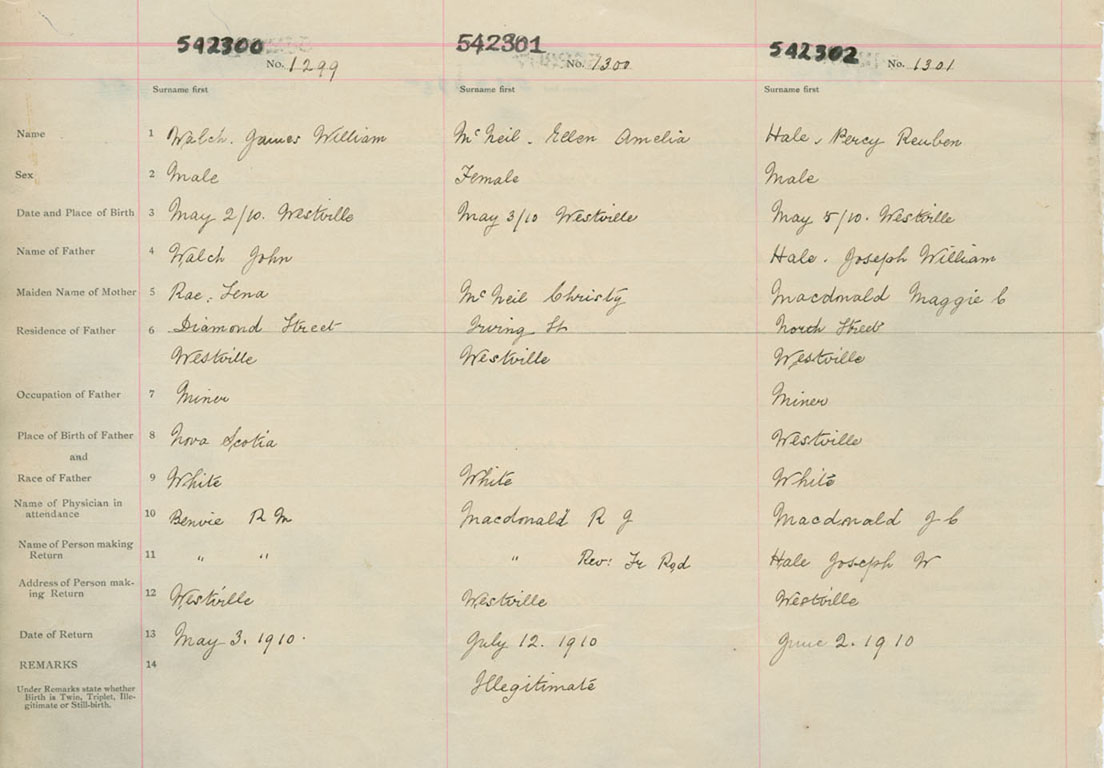 542300 542301 542302
No. 1299 No. 1300 No. 1301
Surname first Surname first Surname first
Name 1 Walch. James William McNeil. Ellen Amelia Hale, Percy Reuben
Sex 2 Male Female Male
Date and Place of Birth 3 May 2/10. Westville May 3/10 Westville May 5/10. Westville
Name of Father 4 Walch John Hale. Joseph William
Maiden Name of Mother 5 Rae, Lena McNeil Christy Macdonald Maggie C
Residence of Father 6 Diamond Street Irving St North Street
Westville Westville Westville
Occupation of Father 7 Miner Miner
Place of Birth of Father 8 Nova Scotia Westville
and
Race of Father 9 White White White
Name of Physician in
attendance 10 Benvie R M Macdonald R J Macdonald J C
Name of Person making
Return 11 " " " Rev: Fr Hale Joseph W
Address of Person mak-
ing Return 12 Westville Westville Westville
Date of Return 13 May 3. 1910. July 12. 1910 June 2. 1910
REMARKS 14
Illegitimate
Under Remarks state whether
Birth is Twin, Triplet, Ille-
gitimate or Still-birth.